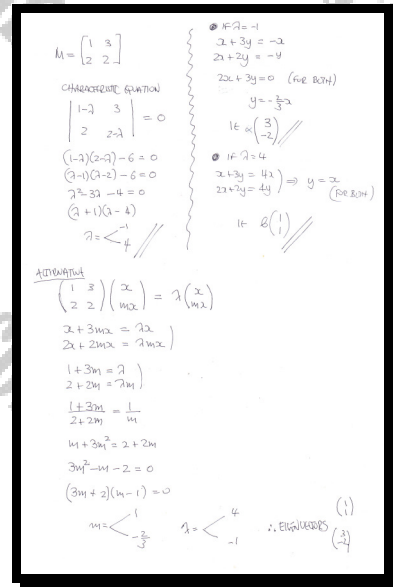 M = [1 3
2 2]
CHARACTERISTIC EQUATION
|1-λ 3
2 2-λ| = 0
(1-λ)(2-λ)-6=0
(λ-1)(λ-2)-6=0
λ²-3λ-4=0
(λ+1)(λ-4)
λ= < -1
4
● IF λ=-1
x+3y = -x
2x+2y = -y
2x+3y=0 (FOR BOTH)
y=-2/3x
IE α(3
-2)
● IF λ=4
x+3y = 4x
2x+2y = 4y) ⇒ y = x
(FOR BOTH)
IE β(1
1)
ALTERNATIVE
(1 3
2 2)(x
mx) = λ(x
mx)
x+3mx = λx
2x+2mx = λmx)
1+3m = λ
2+2m = λm)
1+3m/2+2m = 1/m
m+3m² = 2+2m
3m²-m-2=0
(3m+2)(m-1)=0
m= < 1
-2/3
λ= < 4
-1
∴ EIGENVECTORS (1
1)
(3
-2)